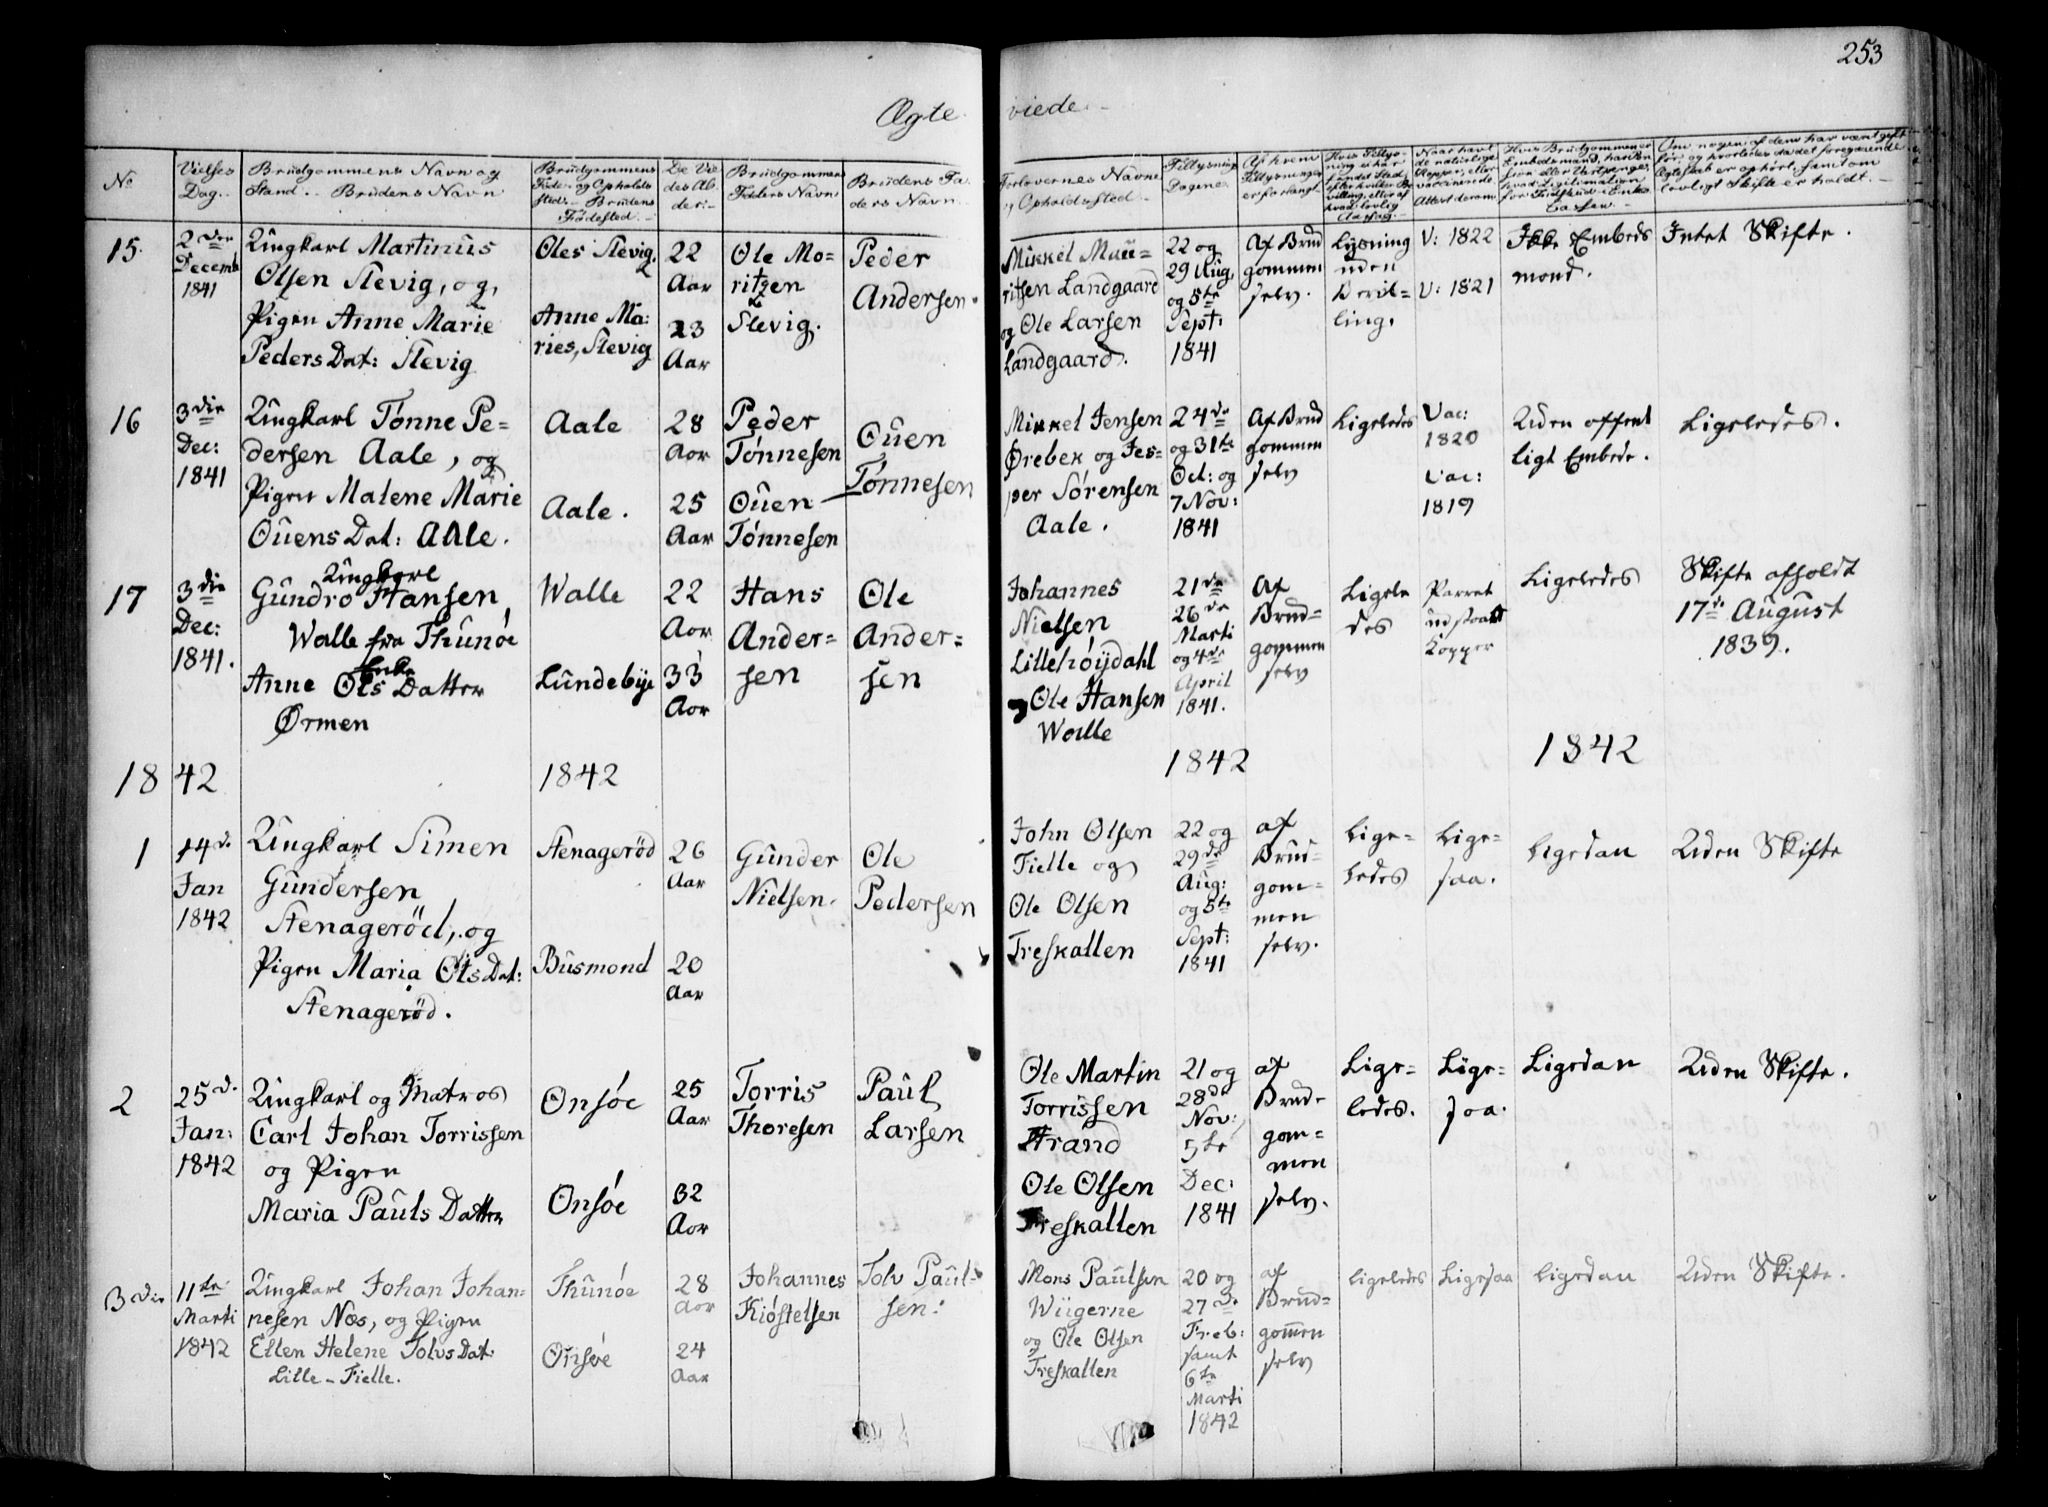 253
Ægte viede.
No
Vielses Dag.
Brudgommens Navn og Stand. Brudens Navn
Brudgommens Føde- og Opholds Sted. Brudens Fødested.
De Viedes Alder.
Brudgommens Faders Navn
Brudens Faders Navn
Forlovernes Navne og Opholdssted
Tillysnings Dagene
Af hvem Tillysningen er forlangt
15.
2den Decemb 1841
Ungkarl Martinus
Olsen Slevig, og,
Pigen Anne Marie
Peders Dat: Slevig
Oles Slevig,
Anne Ma:
ries, Slevig
22
Aar
23
Aar
Ole Mo=
ritzen
Slevig.
Peder
Andersen.
Mikkel Mau=
ritsen Landgaard
og Ole Larsen
Landgaard.
22 og
29 Aug,
og 5te
Sept:
1841
Af Brud
gommen
selv.
Lysning
uden
Bevil=
ling.
V: 1822
V: 1821
Ikke Embeds
mand.
Intet Skifte.
16
3die
Dec:
1841
Ungkarl Tønne Pe=
dersen Aale, og
Pigen Malene Marie
Ouens Dat: Aale.
Aale
Aale.
28
Aar
25
Aar
Peder
Tønnesen
Ouen
Tønnesen
Ouen
Tønnesen
Mikkel Jensen
Ørebek og Jes=
per Sørensen
Aale.
24de
og 31te
Oct: og
7 Nov:
1841
Af Brud
gommen
selv
Ligeledes
Vac:
1820
Vac:
1819
Uden offent
ligt Embede.
Ligeledes.
17
3die
Dec:
1841.
Ungkarl
Gundro Hansen
Walle fra Thunøe
Enke
Anne Ols Datter
Ørmen
Walle
Lundebye
22
Aar
33
Aar
Hans
Ander=
sen
Ole
Ander=
sen
Johannes
Nielsen
Lillehöÿdahl
og Ole Hansen
Walle
21de
26de
Marti
og 4de
April
1841.
Af
Brud=
gommen
selv
Ligele
des
Parret
udstaaet
Kopper
Ligeledes
Skifte afholdt
17de August
1839.
1842
1842
1842
1842
1
14d.
Jan
1842
Ungkarl Simen
Gundersen
Stenagerød, og
Pigen Maria Ols Dat:
Stenagerød.
Stenagerød
Busmond
26
Aar
20
Aar
Gunder
Nielsen.
Ole
Pedersen
John Olsen
Fielle og
Ole Olsen
Treskallen
22 og
29de
Aug:
og 5te
Sept:
1841
af
Brud=
gom=
men
selv.
Lige=
ledes
Lige=
saa.
Ligedan
Uden Skifte
2
25d.
Jan:
1842
Ungkarl og Matros
Carl Johan Torrissen
og Pigen
Maria Pauls Datter
Onsøe
Onsøe
25
Aar
32
Aar
Torris
Thoresen
Paul
Larsen
Ole Martin
Torrissen
Strand
Ole Olsen
Treskallen
21 og
28de
Nov:
5te
Dec:
1841
af
Brud=
gom=
men
selv.
Lige=
ledes.
Lige=
saa.
Ligedan
Uden Skifte.
3die
11te
Marti
1842
Ungkarl Johan Johan=
nesen Næs, og Pigen
Ellen Helene Tolvs Dat:
Lille-Fielle.
Thunøe
Onsøe
28
Aar
24
Aar
Johannes
Kiøstelsen
Tolv Paul=
sen.
Mons Paulsen
Wügerne
og Ole Olsen
Treskallen
20 og
27de
Freb:
samt
6te
Marti
1842
af
Brud=
gommen
selv
ligeledes
Ligesaa
ligedan
Uden Skifte.